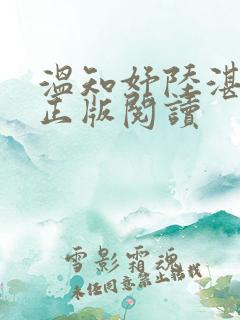 温知妤陸湛
正版閱讀
雪影霜魂
未经同意禁止转载